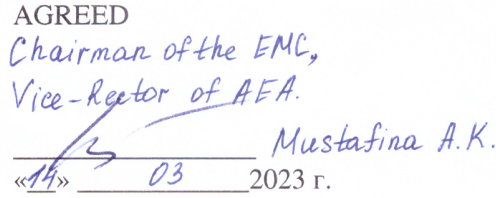 AGREED
Chairman of the EMC,
Vice-Rector of AEA.
Mustafina A.K.
«14» 03 2023 г.